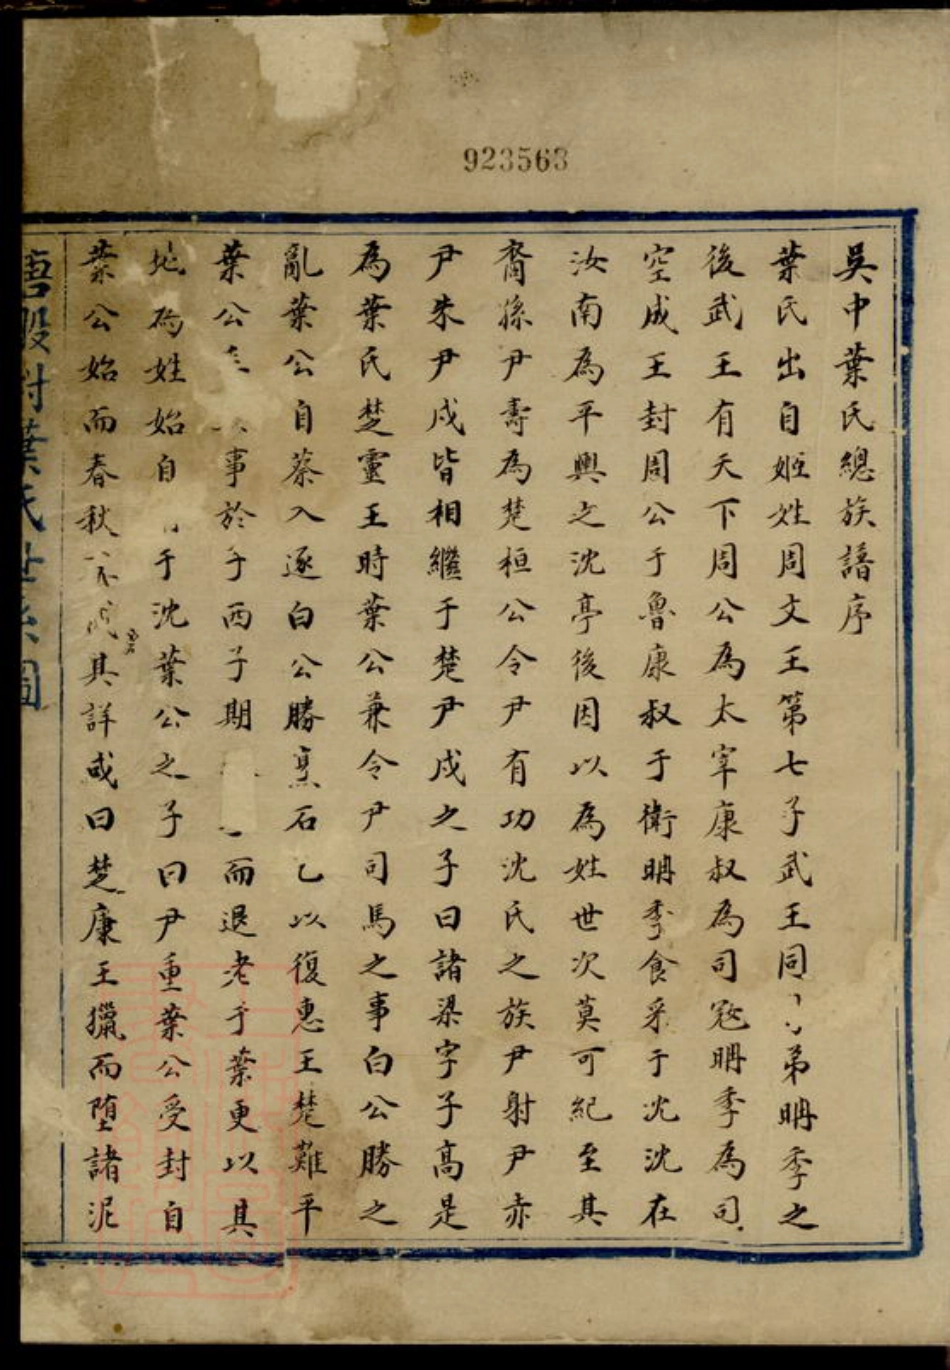 923563
吳中葉氏總族譜序
葉氏出自姬姓周文王第七子武王同弟聃季之
後武王有天下周公為太宰康叔為司寇聃季為司
空成王封周公于魯康叔于衛聃季食采于沈沈在
汝南為平輿之沈亭後因以為姓世次莫可紀至其
裔孫尹壽為楚桓公令尹有功沈氏之族尹射尹赤
尹朱尹戍皆相繼于楚尹戍之子曰諸梁字子高是
為葉氏楚靈王時葉公兼令尹司馬之事白公勝之
亂葉公自蔡入逐白公勝烹石乞以復惠王楚難平
葉公事於子西子期而退老于葉更以其
地為姓始自于沈葉公之子曰尹重葉公受封自
葉公始而春秋其詳或曰楚康王獵而墮諸泥
葉氏世系圖